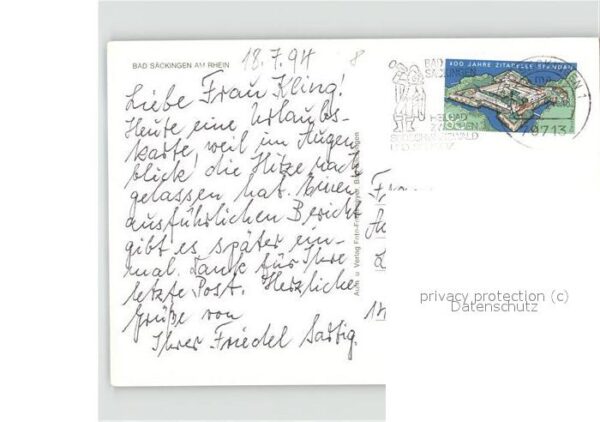 BAD SÄCKINGEN AM RHEIN
18.7.94
8
Liebe Frau Kling!
Heute eine Urlaubs-
karte, weil im Augen
blick die Hitze nach
gelassen hat. Einen
ausführlichen Bericht
gibt es später ein-
mal. Dank für Ihre
letzte Post. Herzliche
Grüße von
Ihrer Friedel
400 JAHRE ZITADELLE SPANDAU
BAD
SÄCKINGEN
HEILBAD
ZWISCHEN
79713
privacy protection (c)
Datenschutz